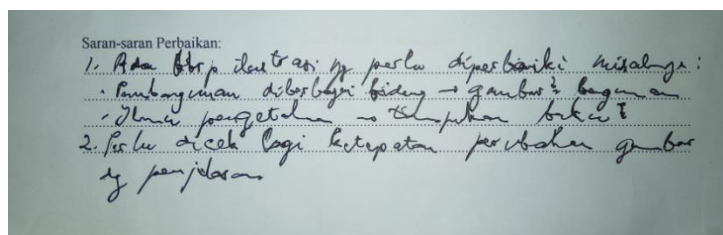 Saran-saran Perbaikan:
1. Ada bbrp ilustrasi yg perlu diperbaiki misalnya:
- Pembangunan diberbagai bidang → gambar² bagunan
- Ilmu pengetahuan → tumpukan buku²
2. Perlu dicek lagi ketepatan perubahan gambar
dg penjelasan